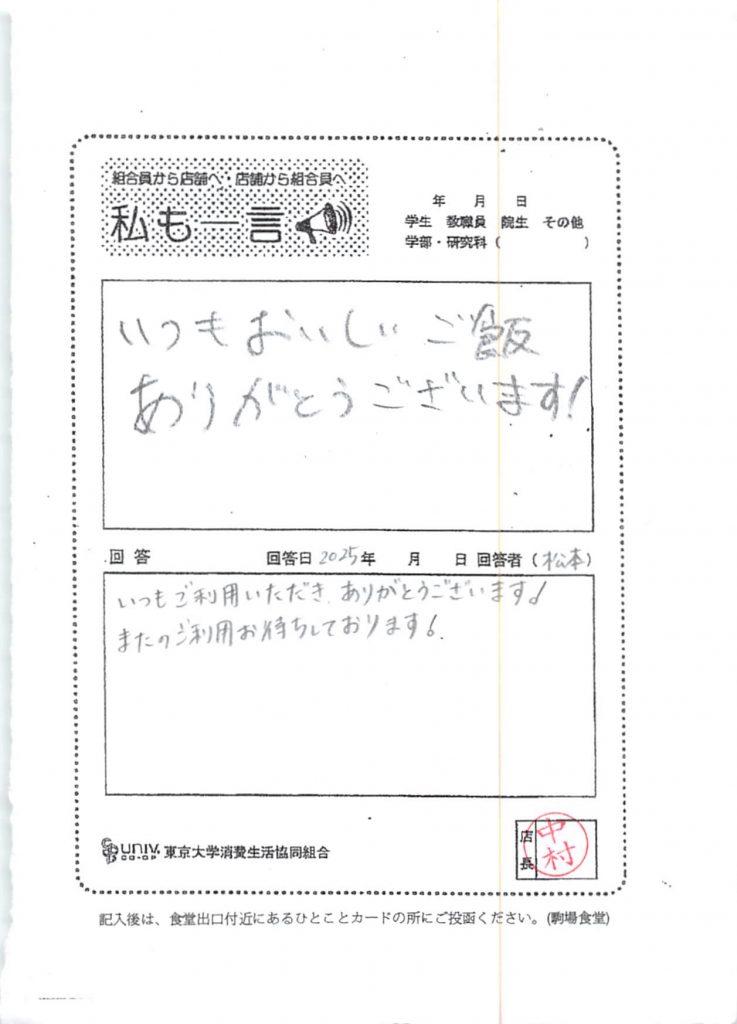 組合員から店舗へ・店舗から組合員へ
私も一言
年 月 日
学生 教職員 院生 その他
学部・研究科（ ）
いつもおいしいご飯
ありがとうございます!
回答 回答日 2025年 月 日 回答者（松本）
いつもご利用いただき、ありがとうございます!
またのご利用お待ちしております!
UNIV. CO-OP 東京大学消費生活協同組合
店長 中村
記入後は、食堂出口付近にあるひとことカードの所にご投函ください。(駒場食堂)